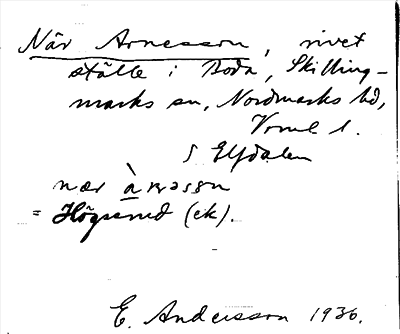 När Arnesson, rivet
ställe i Boda, Skilling-
marks sn, Nordmarks hd,
Vrml l.
S Elfdalen
nær
= Högsrud (ek).
E. Andersson 1936.